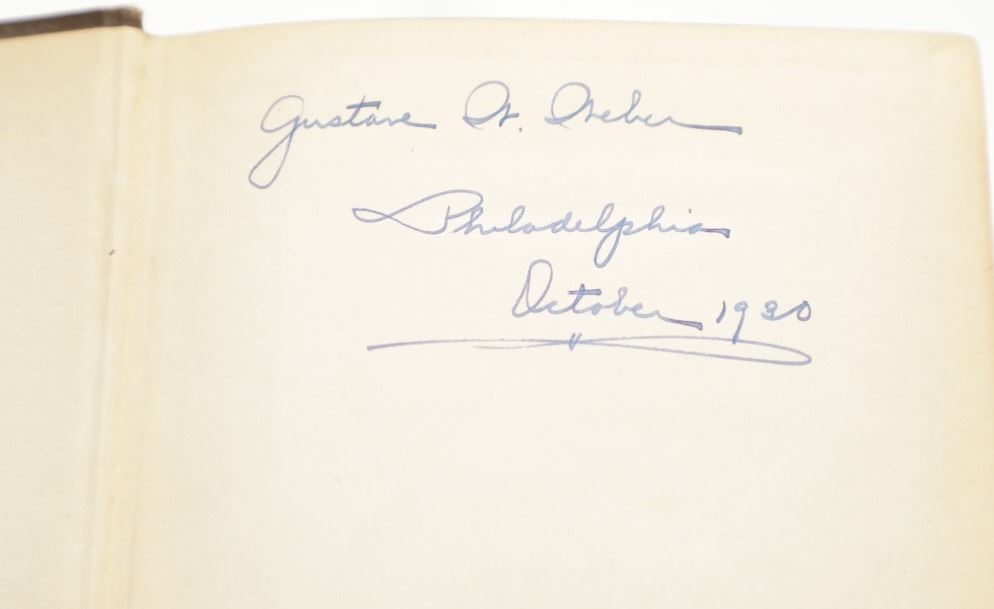 Gustave W. Weber
Philadelphia
October 1930